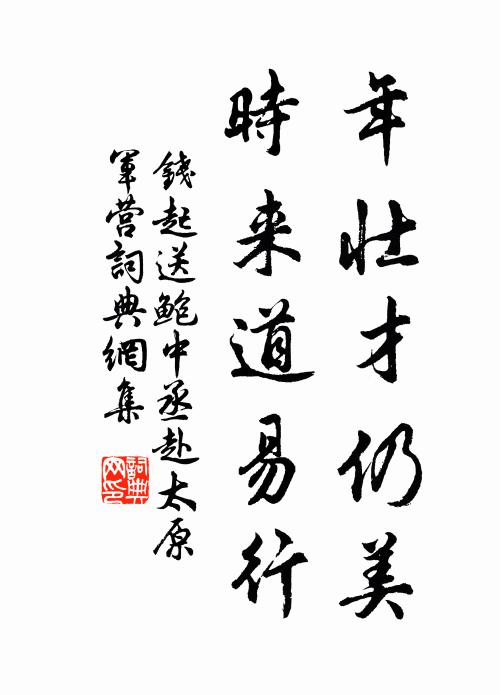 年壮才仍美
時来道易行
錢起送鲍中丞赴太原
軍营詞典網集
詞典
网印